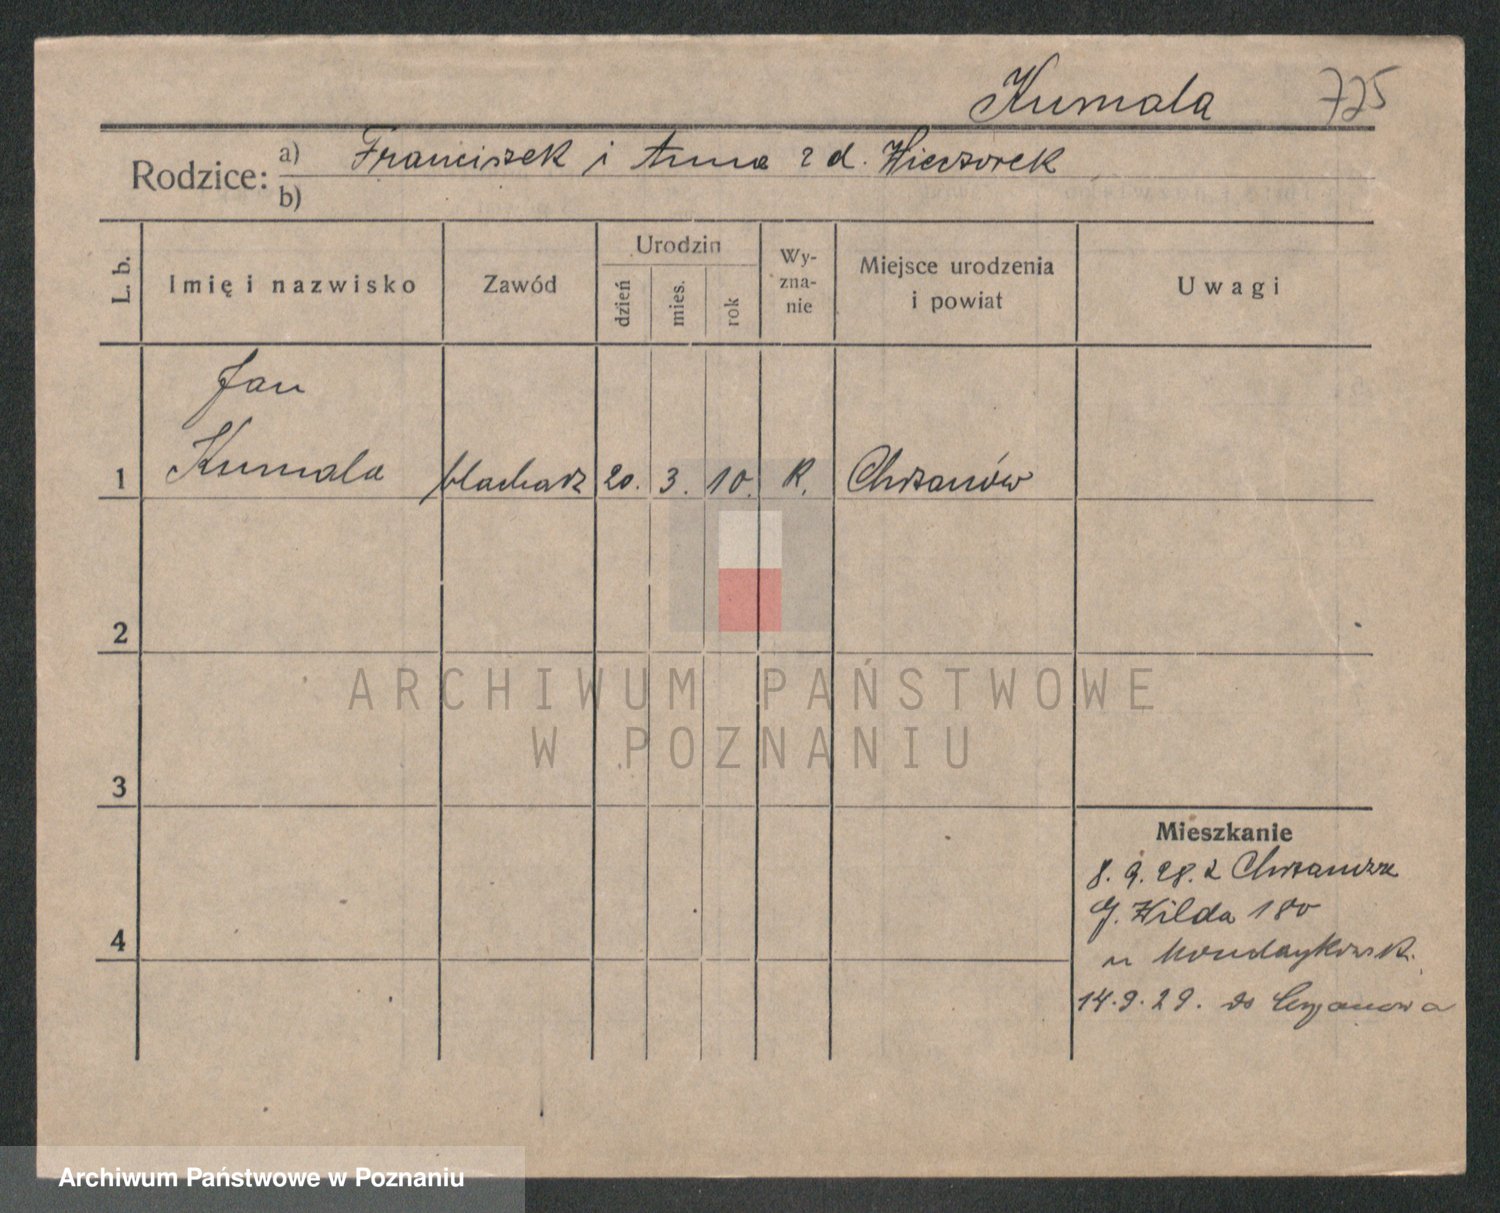 Kumala 725
Rodzice: a) Franciszek i Anna z d. Wieczorek
b)
L. b.
Imię i nazwisko
Zawód
Urodzin
dzień
mies.
rok
Wy-
zna-
nie
Miejsce urodzenia
i powiat
Uwagi
Jan
1 Kumala blacharz 20. 3. 10. R. Chrzanów
2
3
4
Mieszkanie
8. 9. 28. z Chrzanowa
G. Wilda 180
u
14.9.29. do
ARCHIWUM PAŃSTWOWE
W POZNANIU
Archiwum Państwowe w Poznaniu